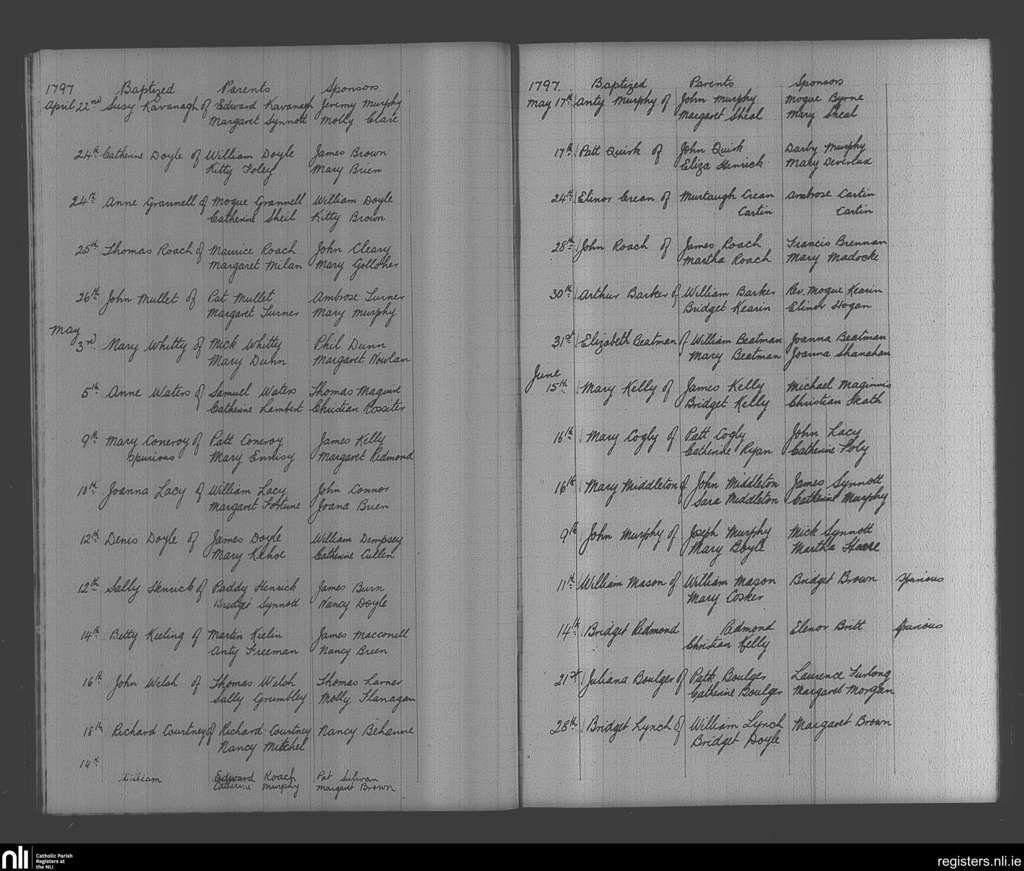 1797 Baptized Parents Sponsors
April 22nd Susy Kavanagh of Edward Kavanagh Jeremy Murphy
Margaret Synnott Molly Clare
24th Catherine Doyle of William Doyle James Brown
Kitty Foley Mary Brien
24th Anne Grannell of Mogue Grannell William Doyle
Catherine Sheil Kitty Brown
25th Thomas Roach of Maurice Roach John Cleary
Margaret Milan Mary Golloher
26th John Mullet of Pat Mullet Ambrose Turner
Margaret Turner Mary Murphy
May
3rd Mary Whitty of Mick Whitty Phil Dunn
Mary Dunn Margaret Nowlan
5th Anne Waters of Samuel Waters Thomas Maguire
Catherine Lambert Christian Rossiter
9th Mary Coneroy of Patt Coneroy James Kelly
Spurious Mary Ennisy Margaret Redmond
10th Joanna Lacy of William Lacy John Connor
Margaret Fortune Joana Brien
12th Denis Doyle of James Doyle William Dempsey
Mary Kehoe Catherine Cullen
12th Sally Henrick of Paddy Henrick James Burn
Bridget Synnott Nancy Doyle
14th Betty Keeling of Martin Kielin James Macconell
Anty Freeman Nancy Brien
16th John Welsh of Thomas Welsh Thomas Larner
Sally Grumbley Molly Flanagan
18th Richard Courtney of Richard Courtney Nancy Behanne
Nancy Mitchel
14th
William Edward Roach Pat Silivan
Catherine Murphy Margaret Brown
1797 Baptized Parents Sponsors
May 17th Anty Murphy of John Murphy Mogue Byrne
Margaret Sheal Mary Sheal
17th Patt Quirk of John Quirk Darby Murphy
Eliza Henrick Mary Deverlad
24th Elinor Crean of Murtaugh Crean Ambrose Cartin
Cartin Cartin
28th John Roach of James Roach Francis Brennan
Martha Roach Mary Madocke
30th Arthur Barker of William Barker Rev. Mogue Kearin
Bridget Kearin Elinor Hogan
31st Elizabeth Beatman of William Beatman Joanna Beatman
Mary Beatman Joanna Shanahan
June
15th Mary Kelly of James Kelly Michael Maginnis
Bridget Kelly Christian Skath
16th Mary Cogly of Patt Cogly John Lacy
Catherine Ryan Catherine Poly
16th Mary Middleton of John Middleton James Synnott
Sara Middleton Catherine Murphy
9th John Murphy of Joseph Murphy Mick Synnott
Mary Boyle Martha Hare
11th William Mason of William Mason Bridget Brown Spurious
Mary Cosker
14th Bridget Redmond Redmond Elenor Britt Spurious
Christian Kelly
21st Juliana Boulger of Patt Boulger Laurence Furlong
Catherine Boulger Margaret Morgan
28th Bridget Lynch of William Lynch Margaret Brown
Bridget Doyle
nli Catholic Parish
Registers at
the NLI
registers.nli.ie